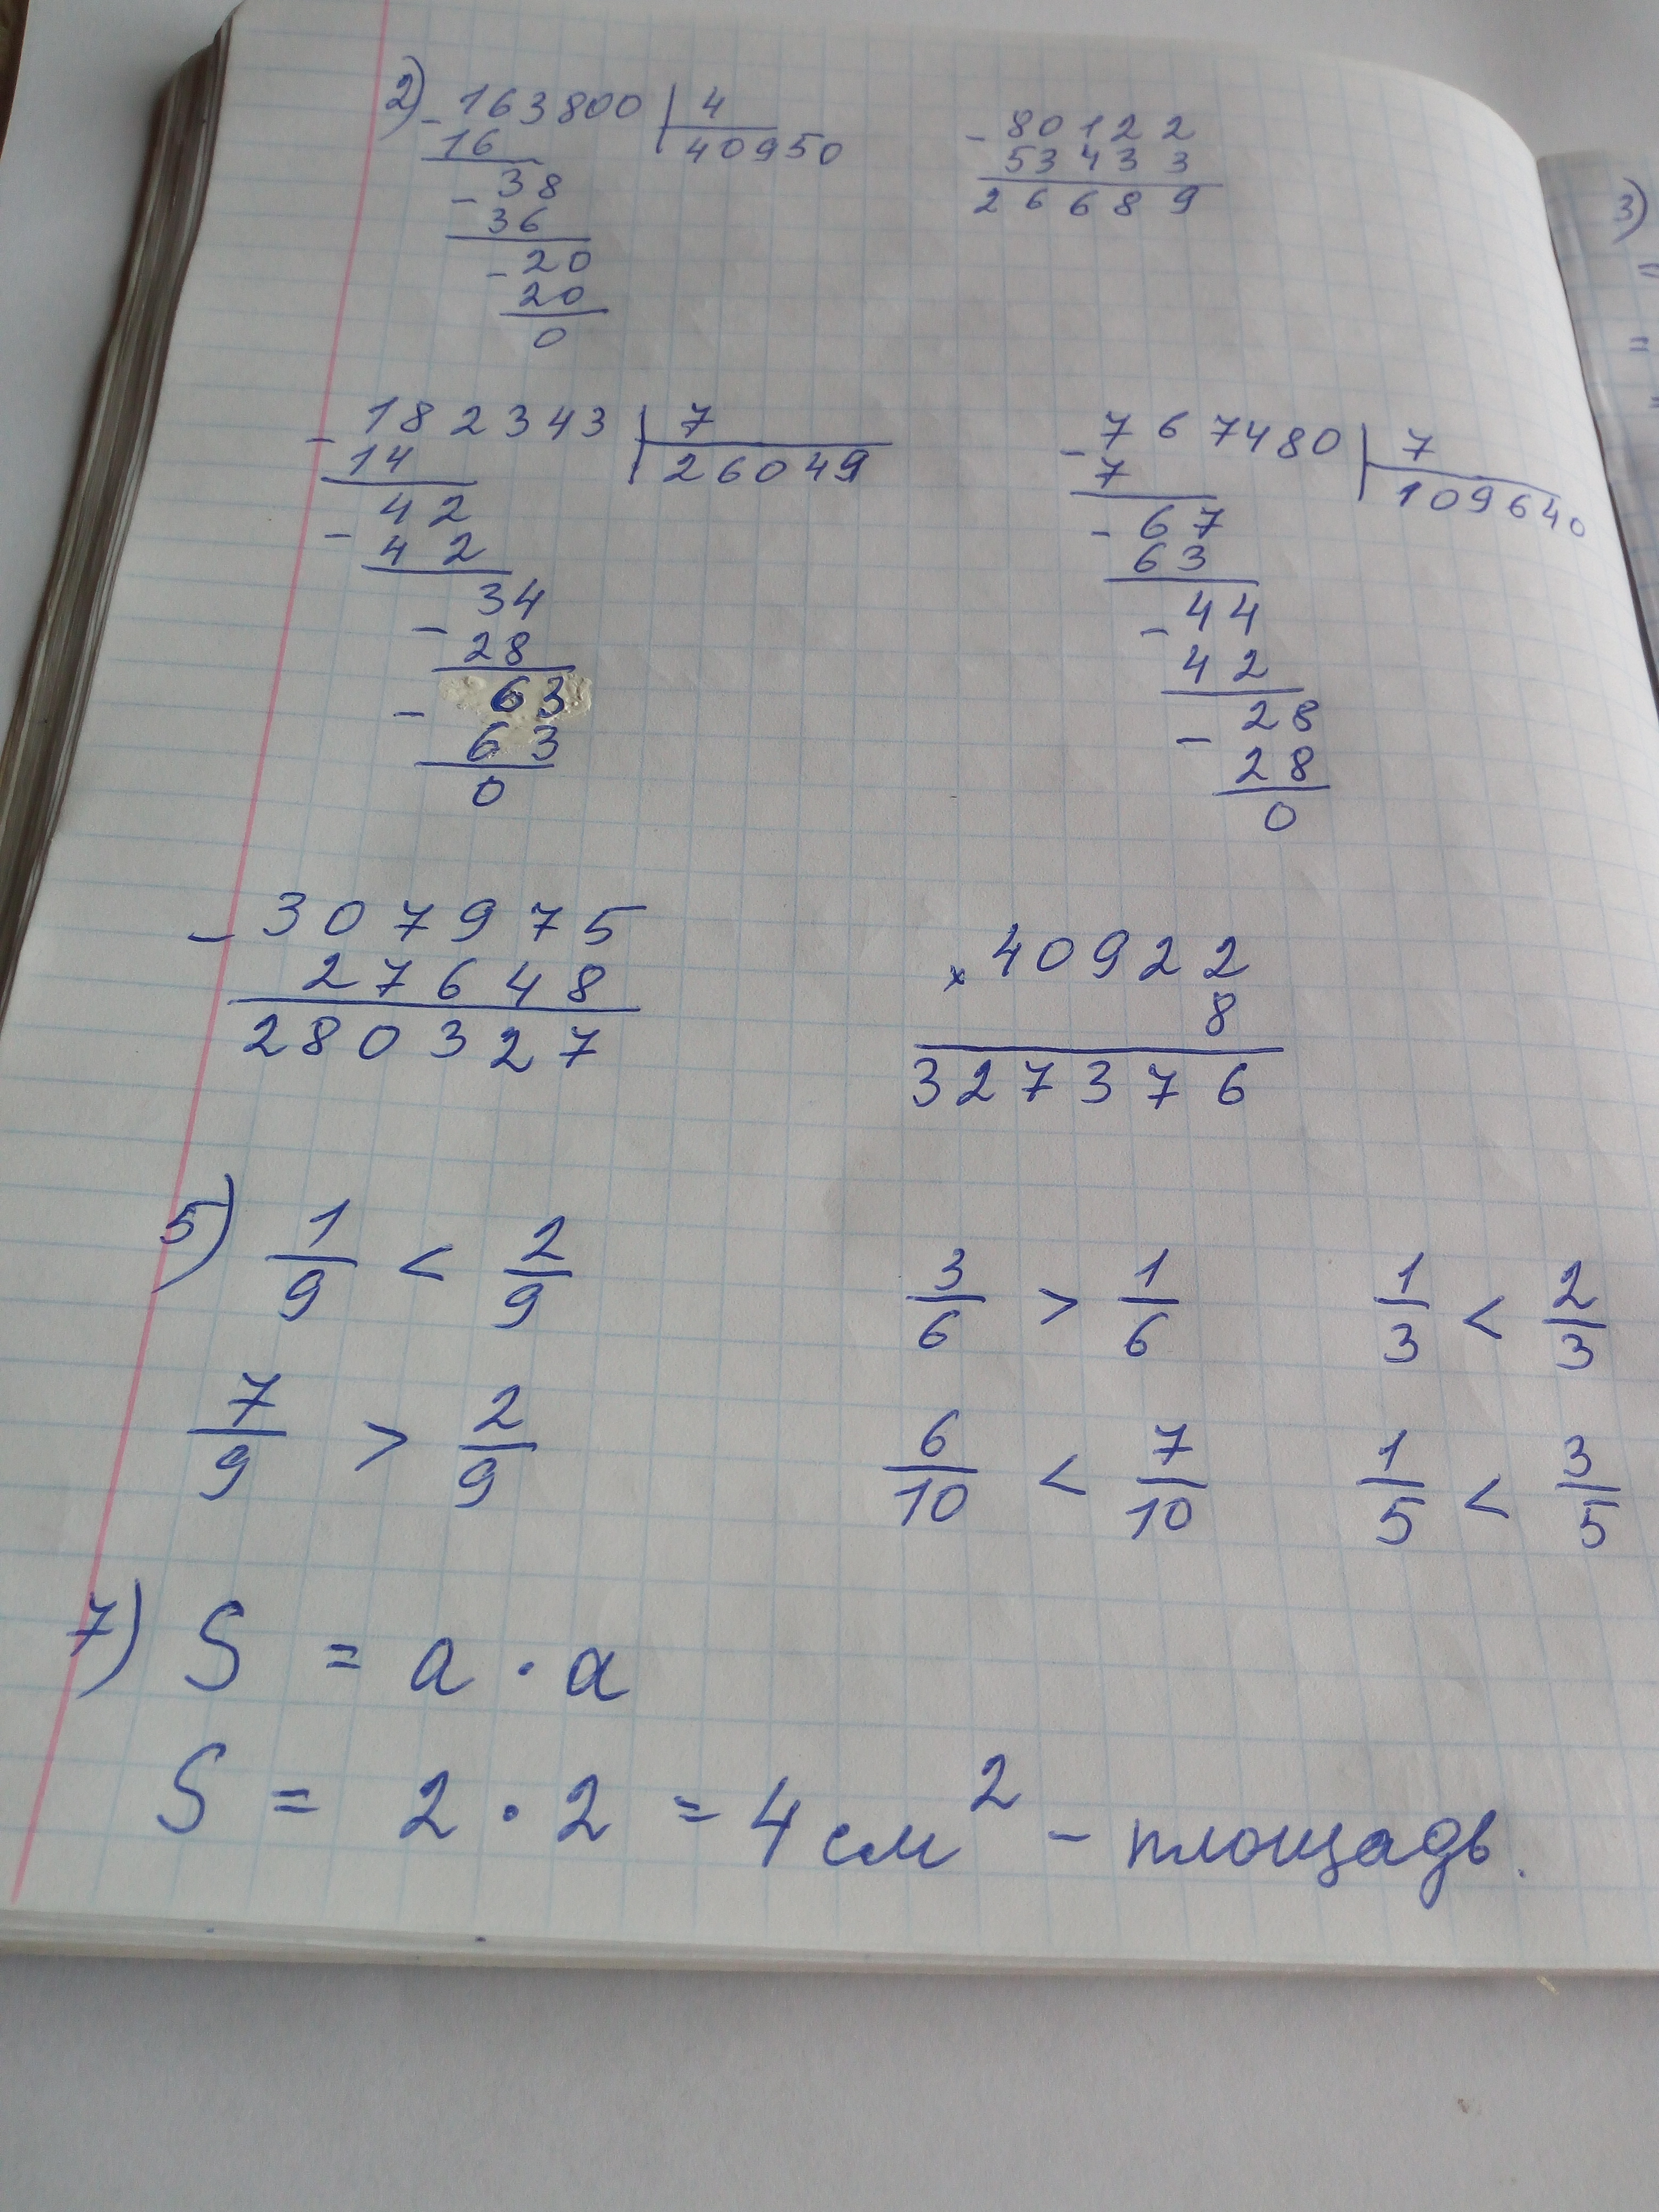 2) - 163800 | 4
16 40950
- 38
36
- 20
20
0
- 80122
53433
26689
- 182343 | 7
14 26049
42
- 42
34
- 28
63
- 63
0
- 767480 | 7
7 109640
- 67
63
44
- 42
28
- 28
0
- 307975
27648
280327
× 40922
8
327376
5) 1/9 < 2/9 3/6 > 1/6 1/3 < 2/3
7/9 > 2/9 6/10 < 7/10 1/5 < 3/5
7) S = a · a
S = 2 · 2 = 4 см² - площадь.
3)
=
=
=